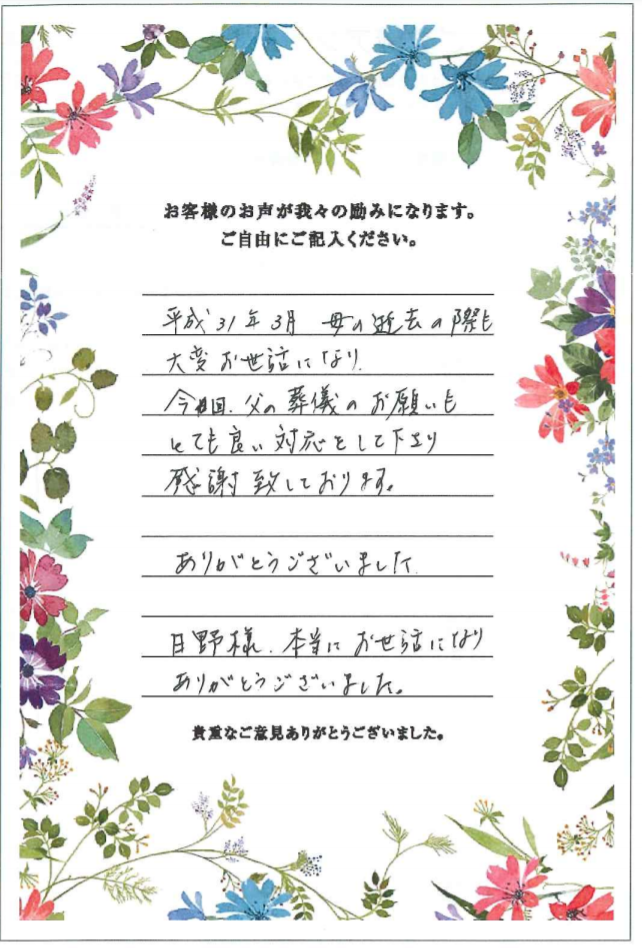 お客様のお声が我々の励みになります。
ご自由にご記入ください。
平成31年3月 母の逝去の際も
大変お世話になり
今回、父の葬儀のお願いも
とても良い対応をして下さり
感謝致しております。
ありがとうございました
日野様、本当にお世話になり
ありがとうございました。
貴重なご意見ありがとうございました。